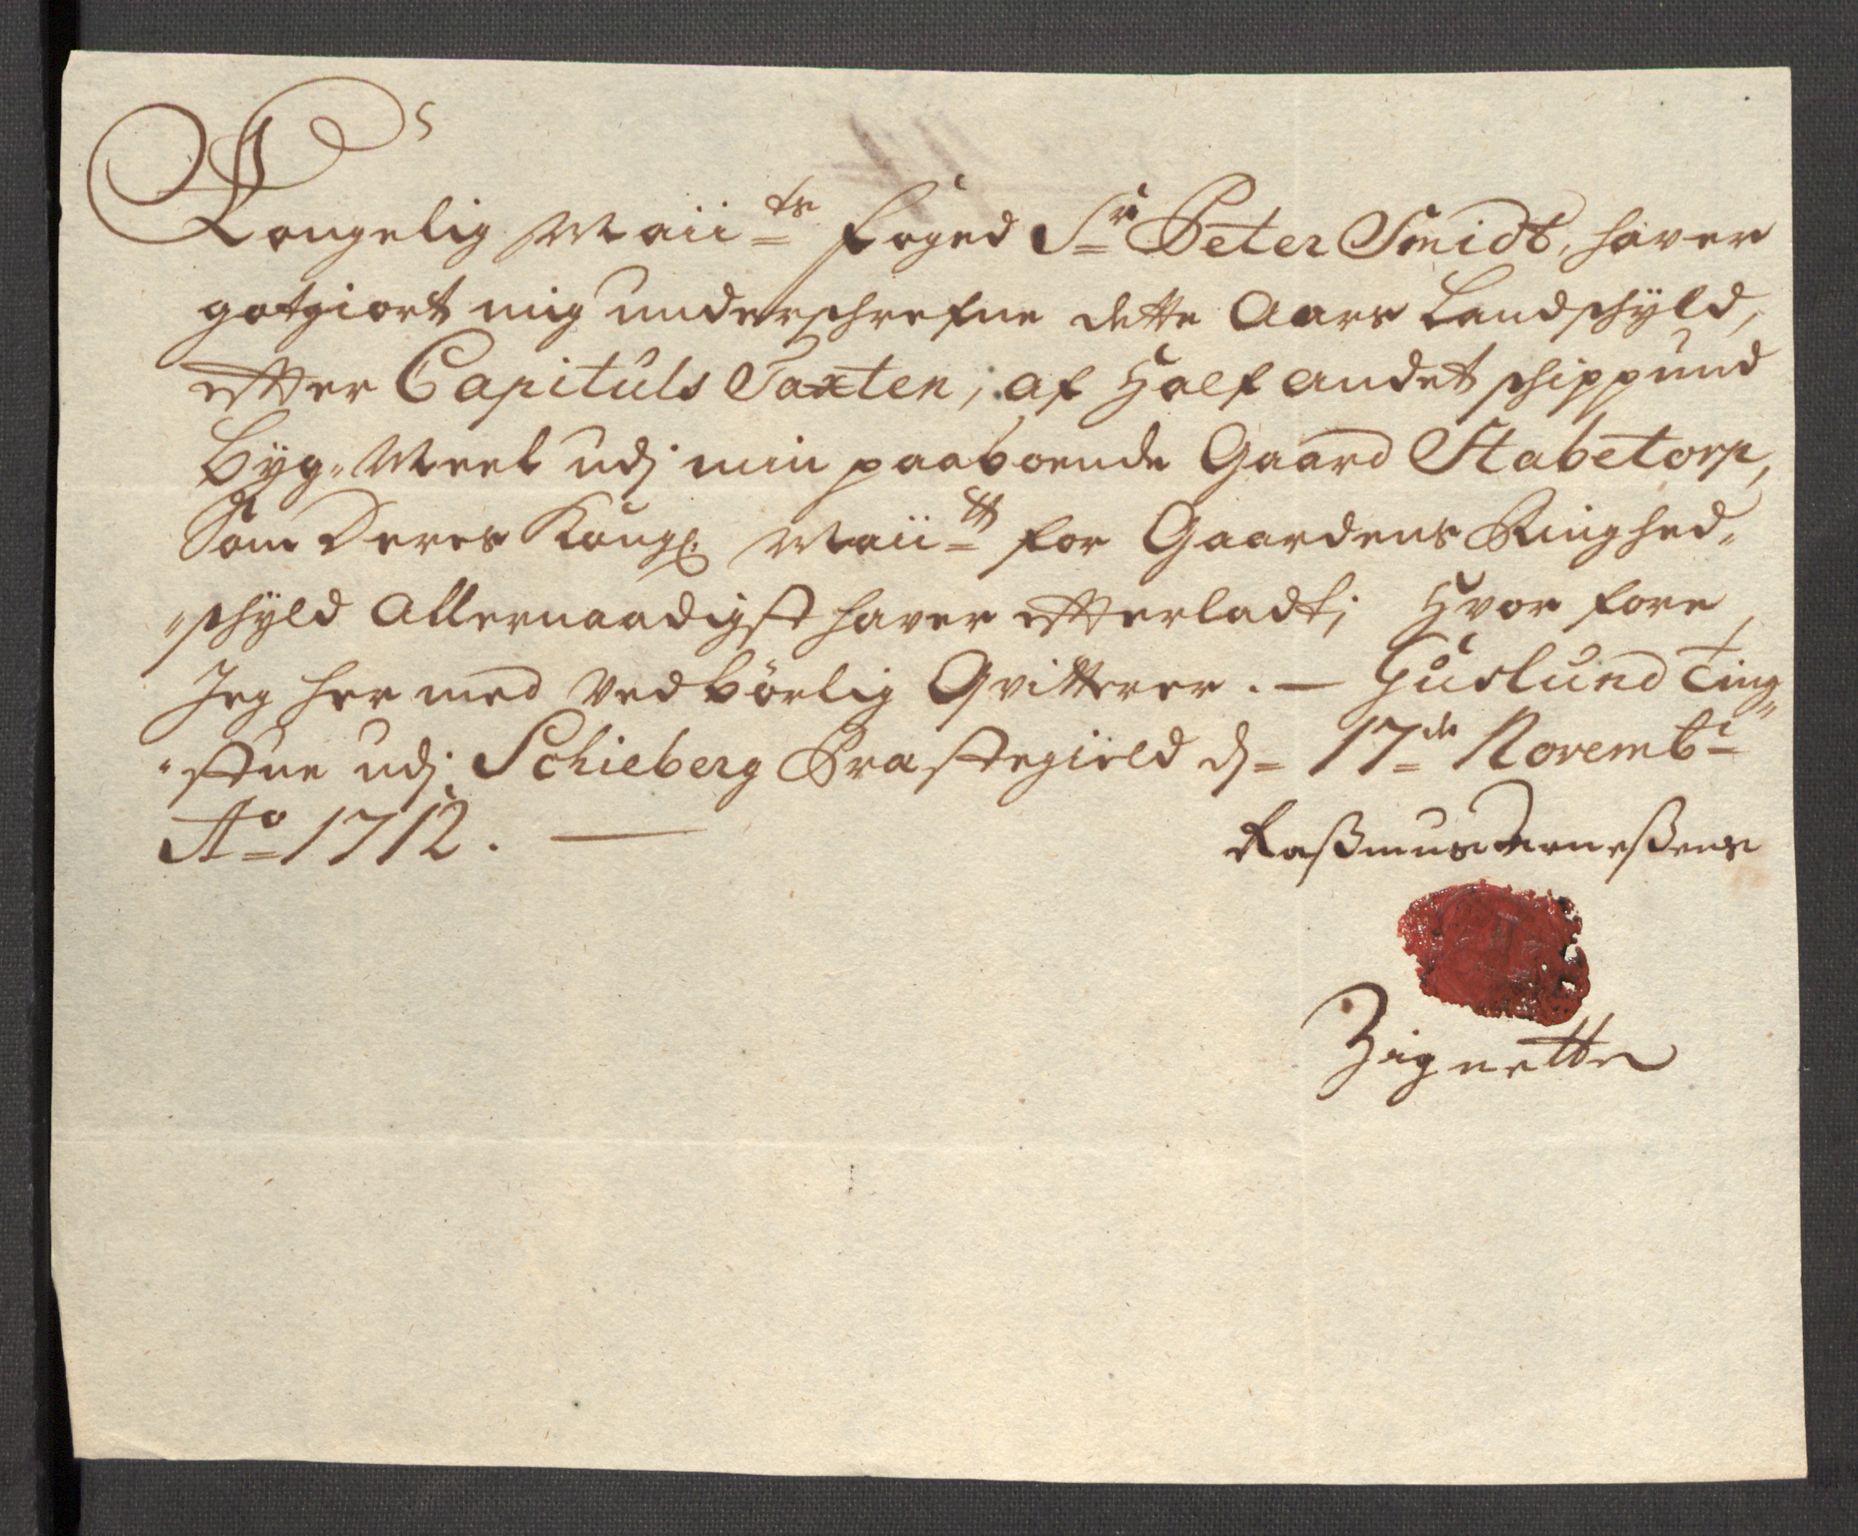 Kongelig Maii^ts Foged S^r Peter Smidt, haver
gotgiort mig underschrefne dette Aars Landschÿld,
efter Capituls Taxten, af Half andet schippund
Bÿg-Meel udj min paaboende Gaard Stabetorp,
Som Deres Kongl. Maii^tt for Gaardens Ringhed-
schÿld Allernaadigst haver efterladt; Hvor fore
Jeg her med vedbörlig Qvitterer. — Guslund Ting-
stue udj Schieberg Præstegield d. 17^de Novemb^r
A^o 1712. —
Raßmus Arneßens
Zignette